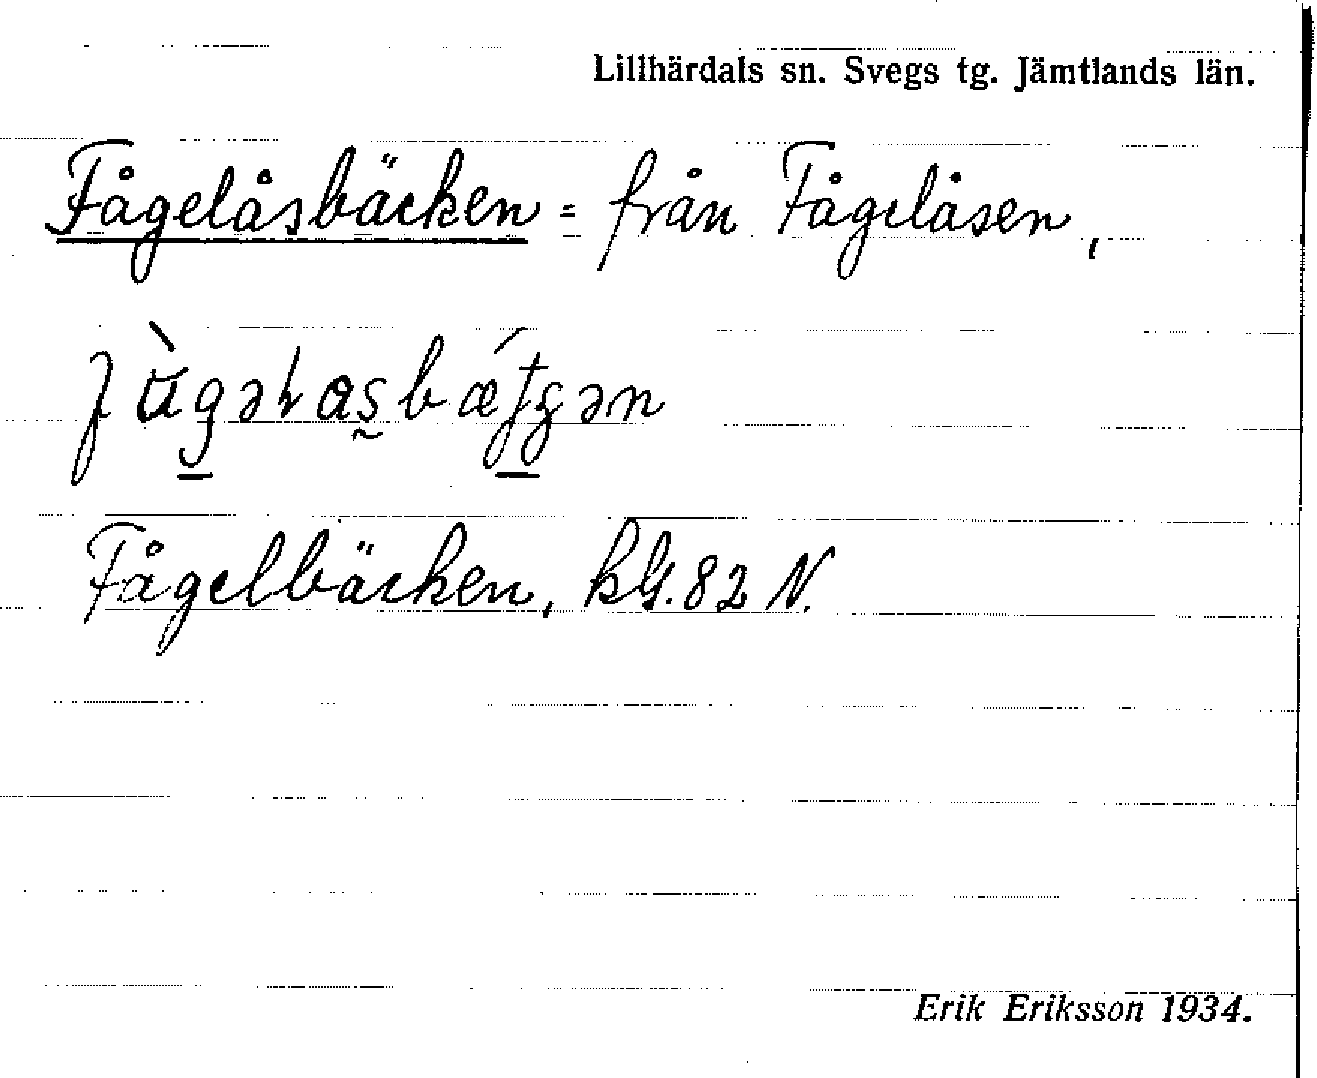 Lillhärdals sn. Svegs tg. Jämtlands län.
Fågelåsbäcken = från Fågelåsen,
Fågelbäcken, kbl. 82 N.
Erik Eriksson 1934.